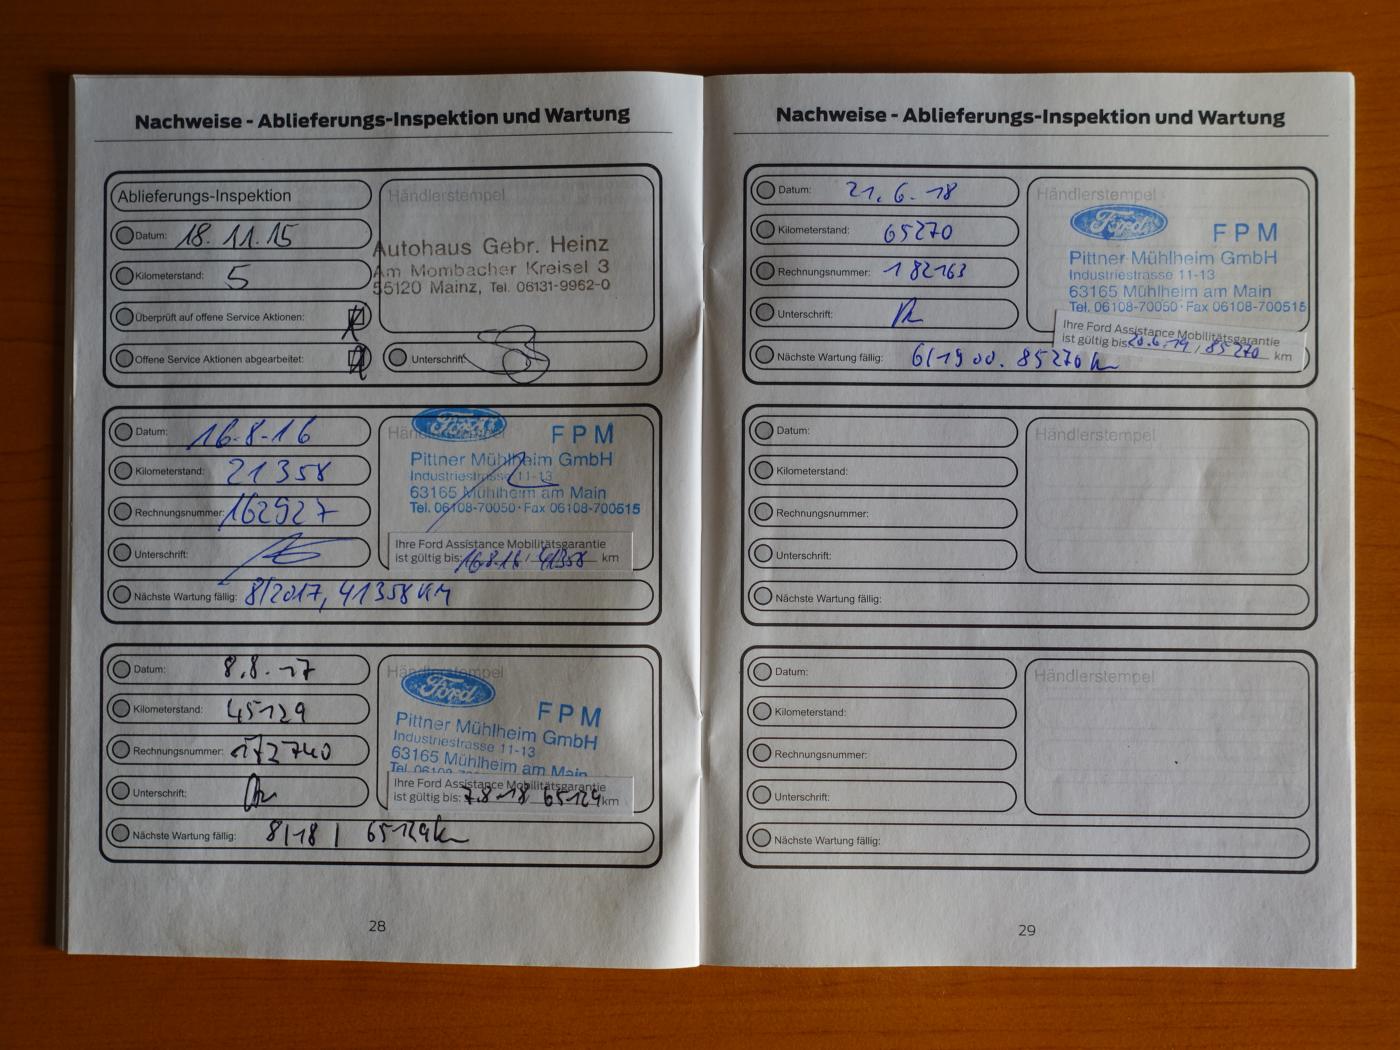 Nachweise - Ablieferungs-Inspektion und Wartung
Ablieferungs-Inspektion
Datum: 18.11.15
Kilometerstand: 5
Überprüft auf offene Service Aktionen:
Offene Service Aktionen abgearbeitet:
Händlerstempel
Autohaus Gebr. Heinz
Am Mombacher Kreisel 3
55120 Mainz, Tel. 06131-9962-0
Unterschrift:
Datum: 16.8.16
Kilometerstand: 21358
Rechnungsnummer: 162927
Unterschrift:
Nächste Wartung fällig: 8/2017, 41358 KM
Händlerstempel
Ford
FPM
Pittner Mühlheim GmbH
Industriestrasse 11-13
63165 Mühlheim am Main
Tel. 06108-70050 · Fax 06108-700515
Ihre Ford Assistance Mobilitätsgarantie
ist gültig bis: / 41358 km
Datum: 8.8.17
Kilometerstand: 45129
Rechnungsnummer: 172740
Unterschrift:
Nächste Wartung fällig: 8/18 / 65129 km
Händlerstempel
Ford
FPM
Pittner Mühlheim GmbH
Industriestrasse 11-13
63165 Mühlheim am Main
Tel. 06108
Ihre Ford Assistance Mobilitätsgarantie
ist gültig bis: 7.8.18 65129 km
28
Nachweise - Ablieferungs-Inspektion und Wartung
Datum: 21.6.18
Kilometerstand: 65270
Rechnungsnummer: 182163
Unterschrift:
Nächste Wartung fällig: 6/19 00. 85270 km
Händlerstempel
Ford
FPM
Pittner Mühlheim GmbH
Industriestrasse 11-13
63165 Mühlheim am Main
Tel. 06108-70050 · Fax 06108-700515
Ihre Ford Assistance Mobilitätsgarantie
ist gültig bis: 20.6.19 / 85270 km
Datum:
Kilometerstand:
Rechnungsnummer:
Unterschrift:
Nächste Wartung fällig:
Händlerstempel
Datum:
Kilometerstand:
Rechnungsnummer:
Unterschrift:
Nächste Wartung fällig:
Händlerstempel
29